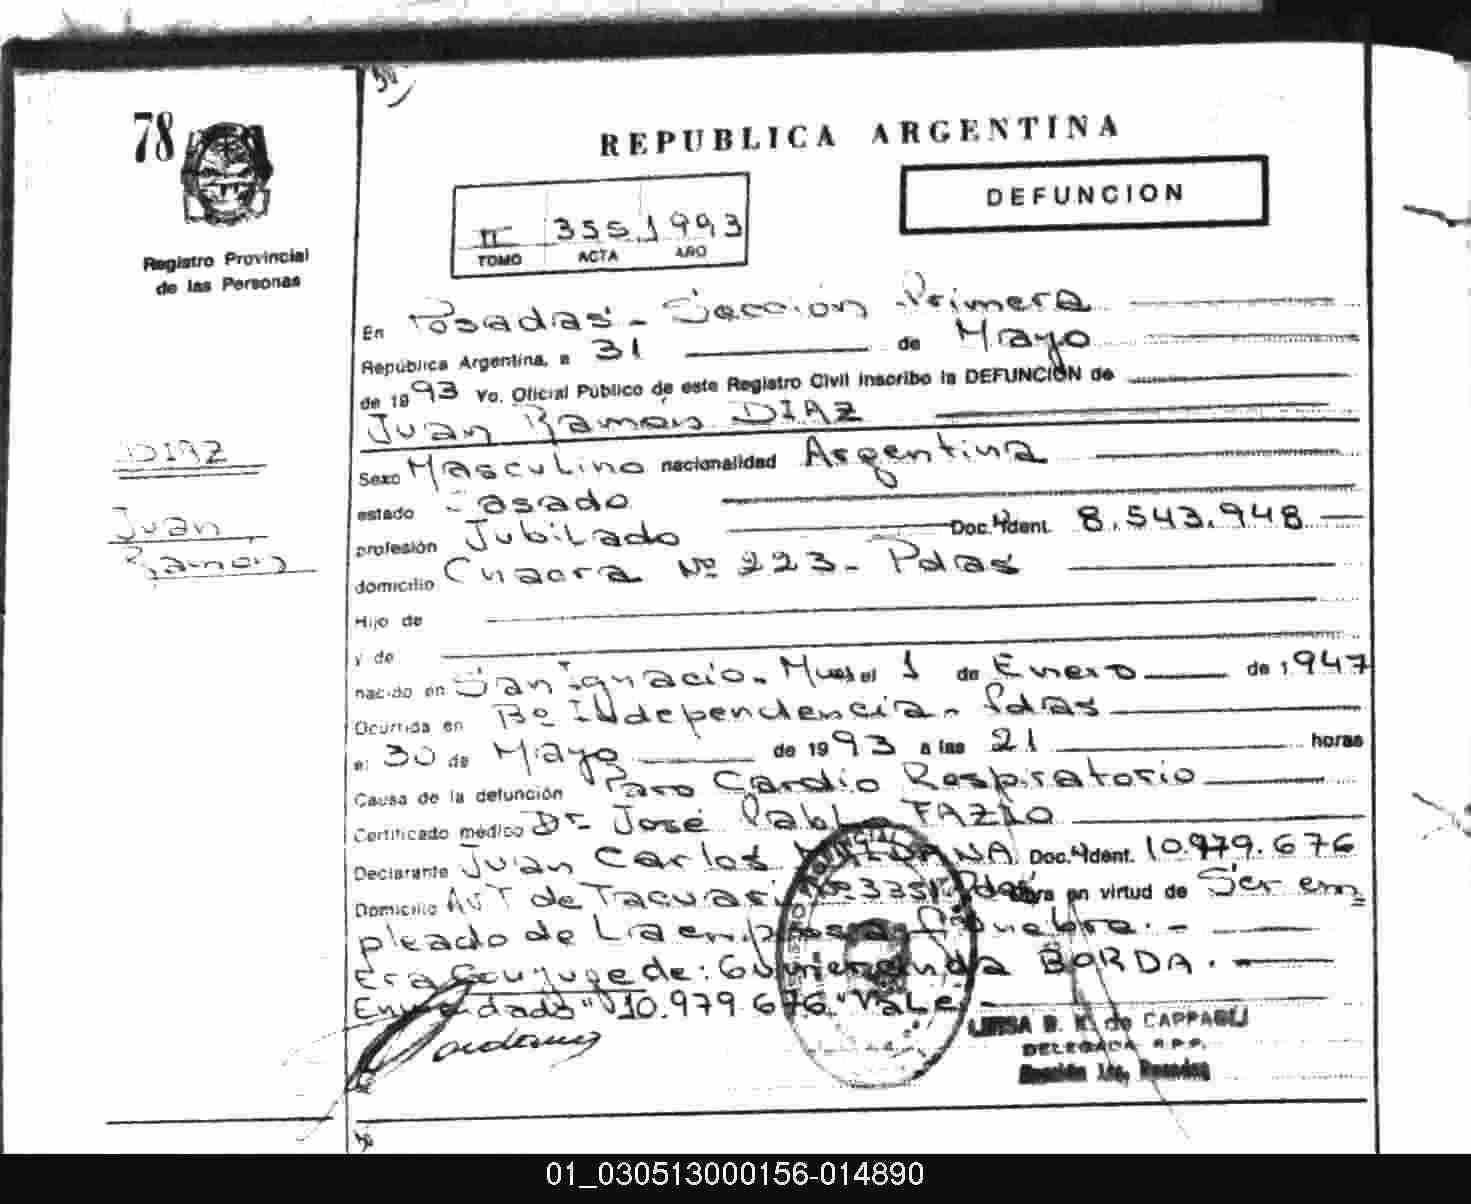 78
Registro Provincial
de las Personas
REPUBLICA ARGENTINA
DEFUNCION
II 355 1993
TOMO ACTA AÑO
En Posadas - Sección Primera
República Argentina, a 31 de Mayo
de 1993 Yo, Oficial Público de este Registro Civil inscribo la DEFUNCIÓN de
Juan Ramón DIAZ
Sexo Masculino nacionalidad Argentina
estado Casado
profesión Jubilado Doc. Ident. 8.543.948
domicilio Chacra Nº 223 - Pdas
Hijo de
y de
nacido en San Ignacio - Mnes el 1 de Enero de 1947
Ocurrida en Bº Independencia - Pdas
el 30 de Mayo de 1993 a las 21 horas
Causa de la defunción Paro Cardio Respiratorio
Certificado médico Dr José Pablo FAZIO
Declarante Juan Carlos MAIDANA Doc. Ident. 10.979.676
Domicilio AvT de Tacuari Nº 3351 Pdas Obra en virtud de Ser em=
pleado de La empresa fúnebre. -
Era Conyuge de: Gumercinda BORDA. -
Enmendado "10.979.676" Vale -
DIAZ
Juan
Ramón
de CAPPAGLI
DELEGADA R.P.P.
Sección 1ra. Posadas
01_030513000156-014890